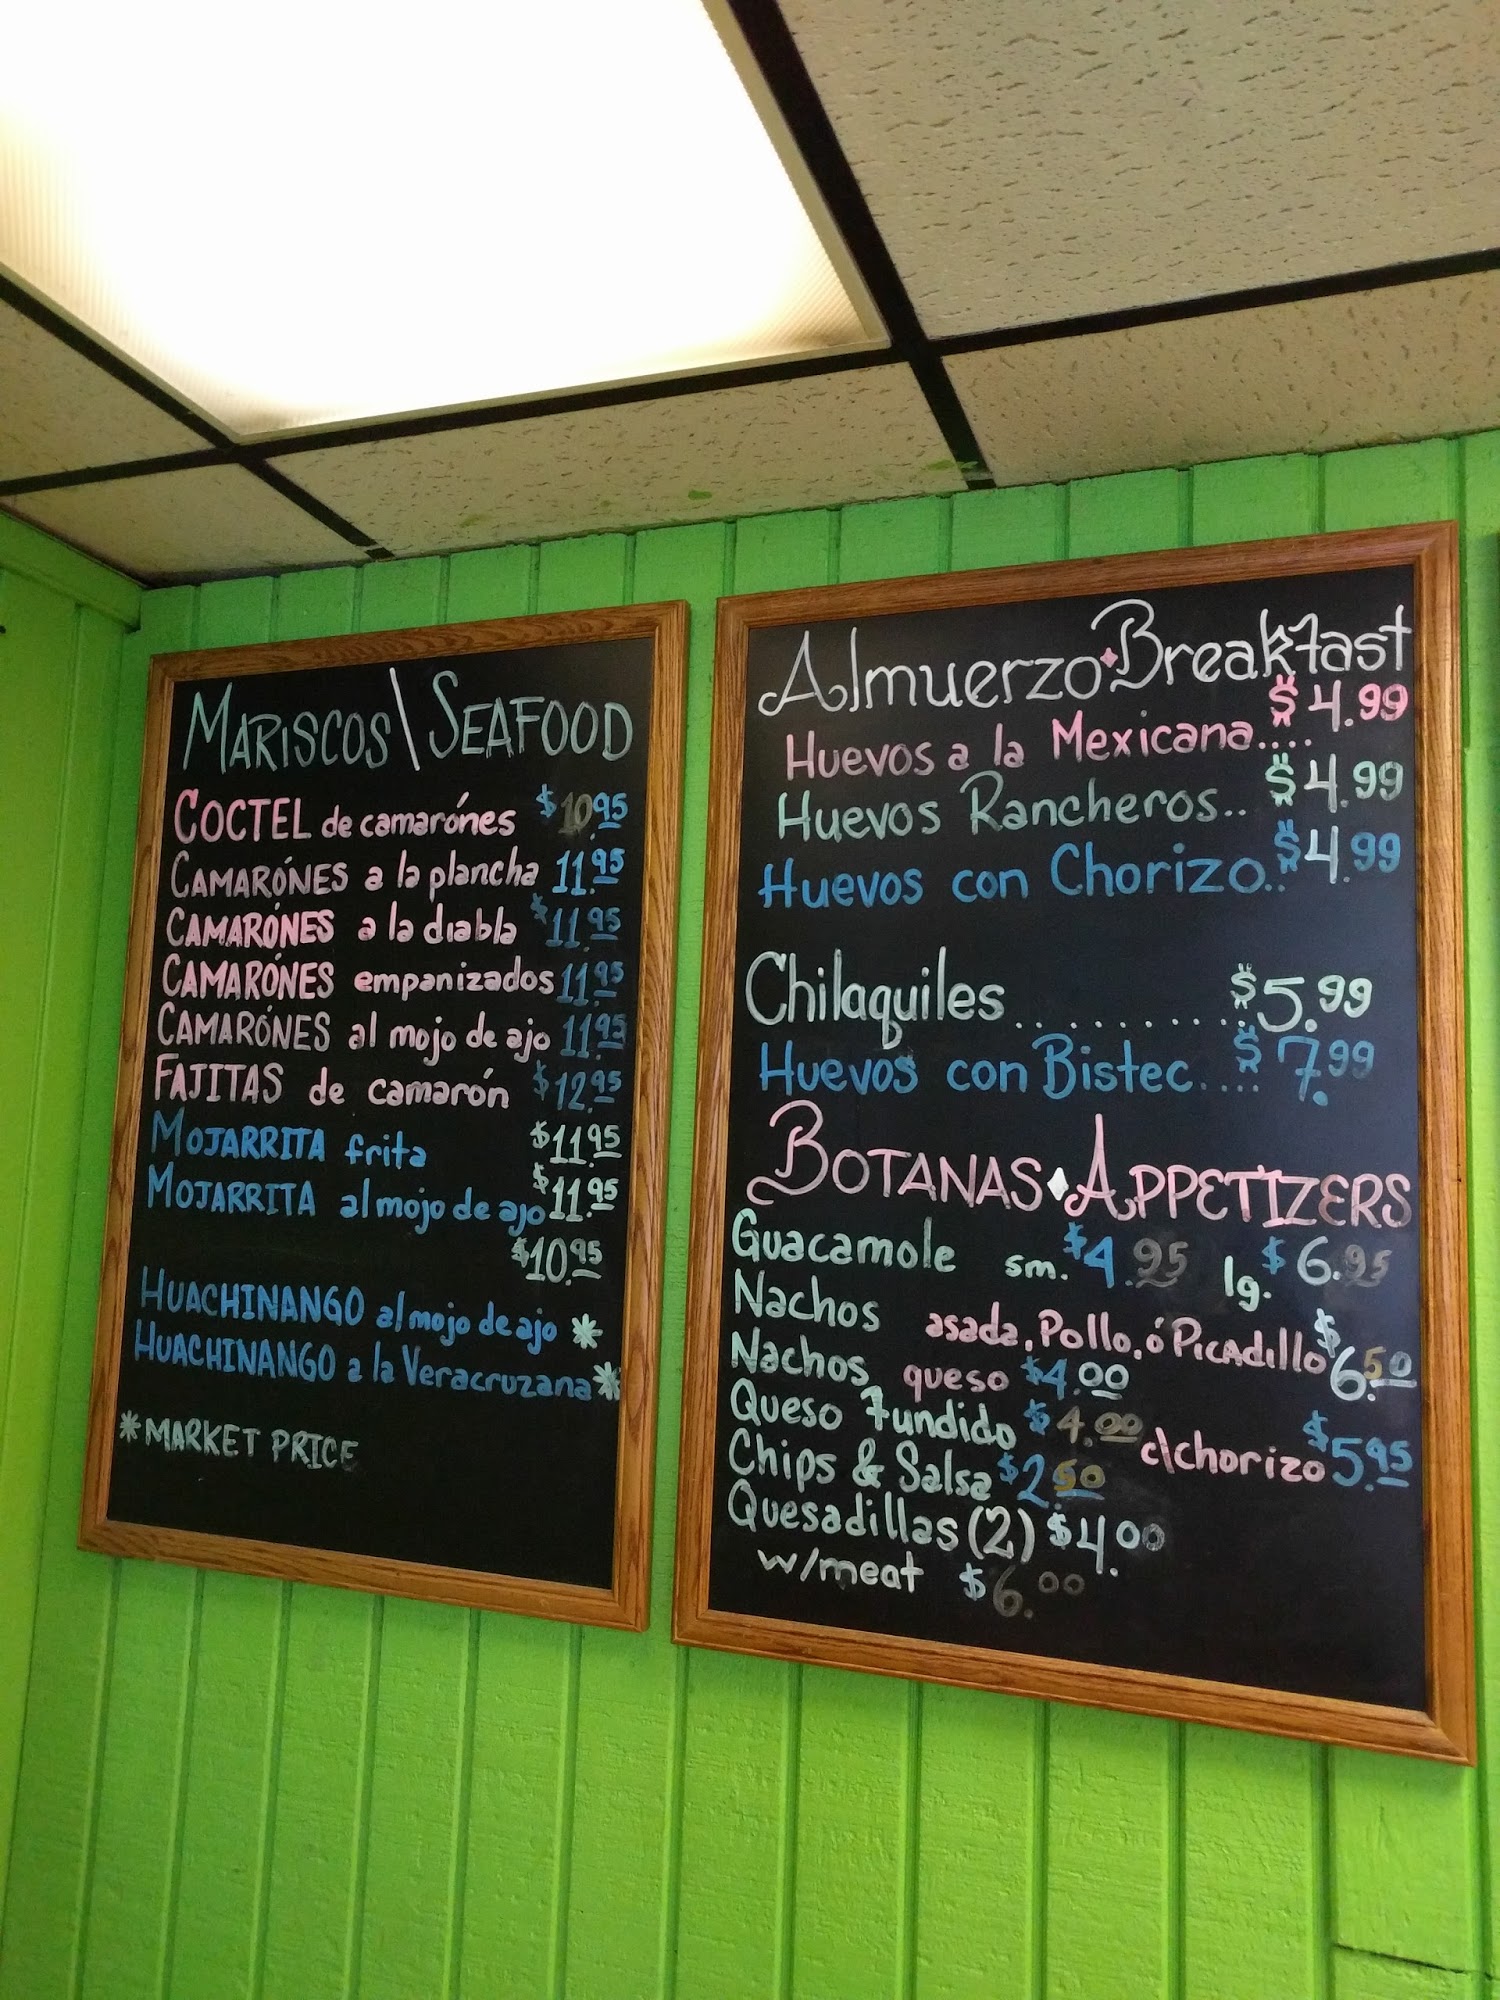 MARISCOS \ SEAFOOD
COCTEL de camarónes $10.95
CAMARÓNES a la plancha 11.95
CAMARÓNES a la diabla $11.95
CAMARÓNES empanizados 11.95
CAMARÓNES al mojo de ajo 11.95
FAJITAS de camarón $12.95
MOJARRITA frita $11.95
MOJARRITA al mojo de ajo $11.95
$10.95
HUACHINANGO al mojo de ajo *
HUACHINANGO a la Veracruzana *
*MARKET PRICE
Almuerzo Breakfast
Huevos a la Mexicana.... $4.99
Huevos Rancheros.. $4.99
Huevos con Chorizo.. $4.99
Chilaquiles .......... $5.99
Huevos con Bistec.... $7.99
BOTANAS APPETIZERS
Guacamole sm. $4.95 lg. $6.95
Nachos asada, Pollo, ó PICADILLO $6.50
Nachos queso $4.00
Queso Fundido $4.00 c\chorizo $5.95
Chips & Salsa $2.50
Quesadillas (2) $4.00
w/meat $6.00